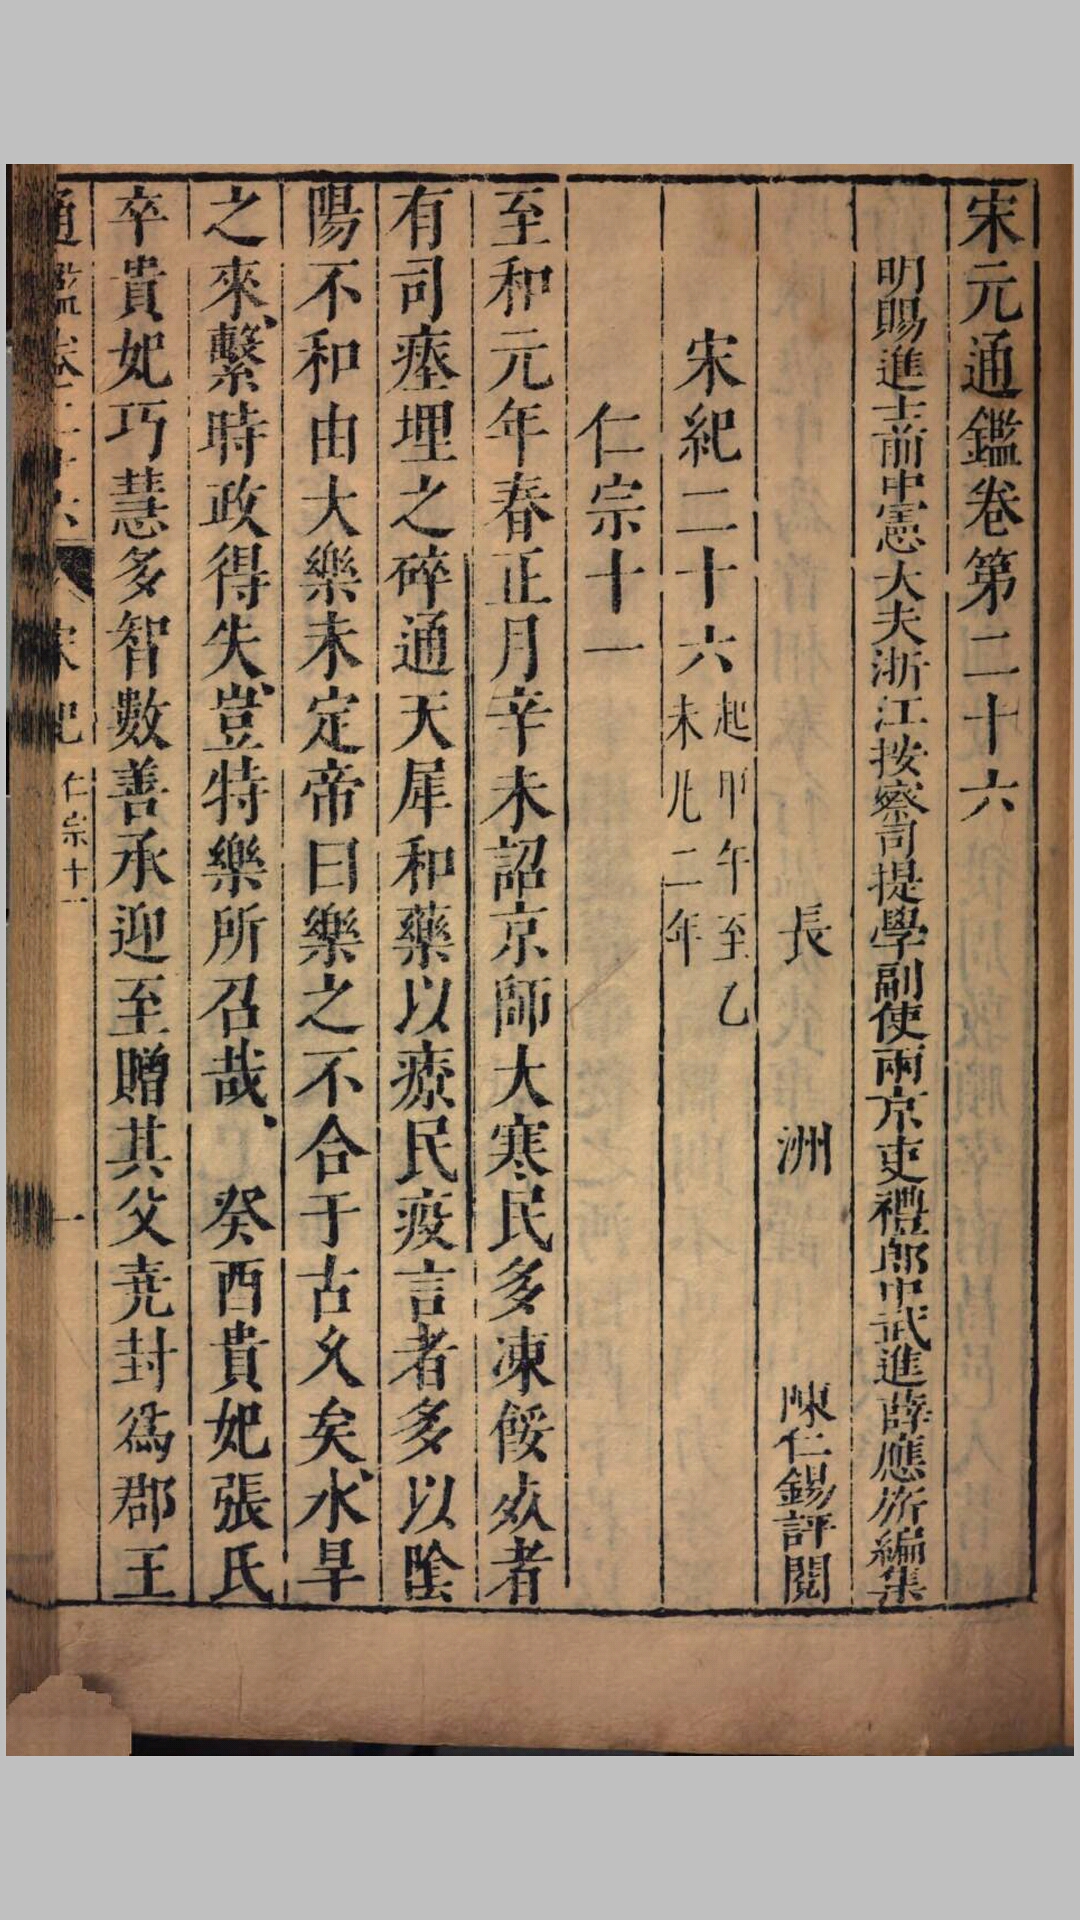 宋元通鑑卷第二十六
明賜進士前中憲大夫浙江按察司提學副使兩京吏禮郎中武進薛應旂編集
長洲陳仁錫評閱
宋紀二十六起甲午至乙未凡二年
仁宗十一
至和元年春正月辛未詔京師大寒民多凍餒死者
有司瘞埋之碎通天犀和藥以療民疫言者多以陰
陽不和由大樂未定帝曰樂之不合于古久矣水旱
之來繫時政得失豈特樂所召哉癸酉貴妃張氏
卒貴妃巧慧多智數善承迎至贈其父尭封爲郡王
通鑑卷二十六 宋紀 仁宗十一 一